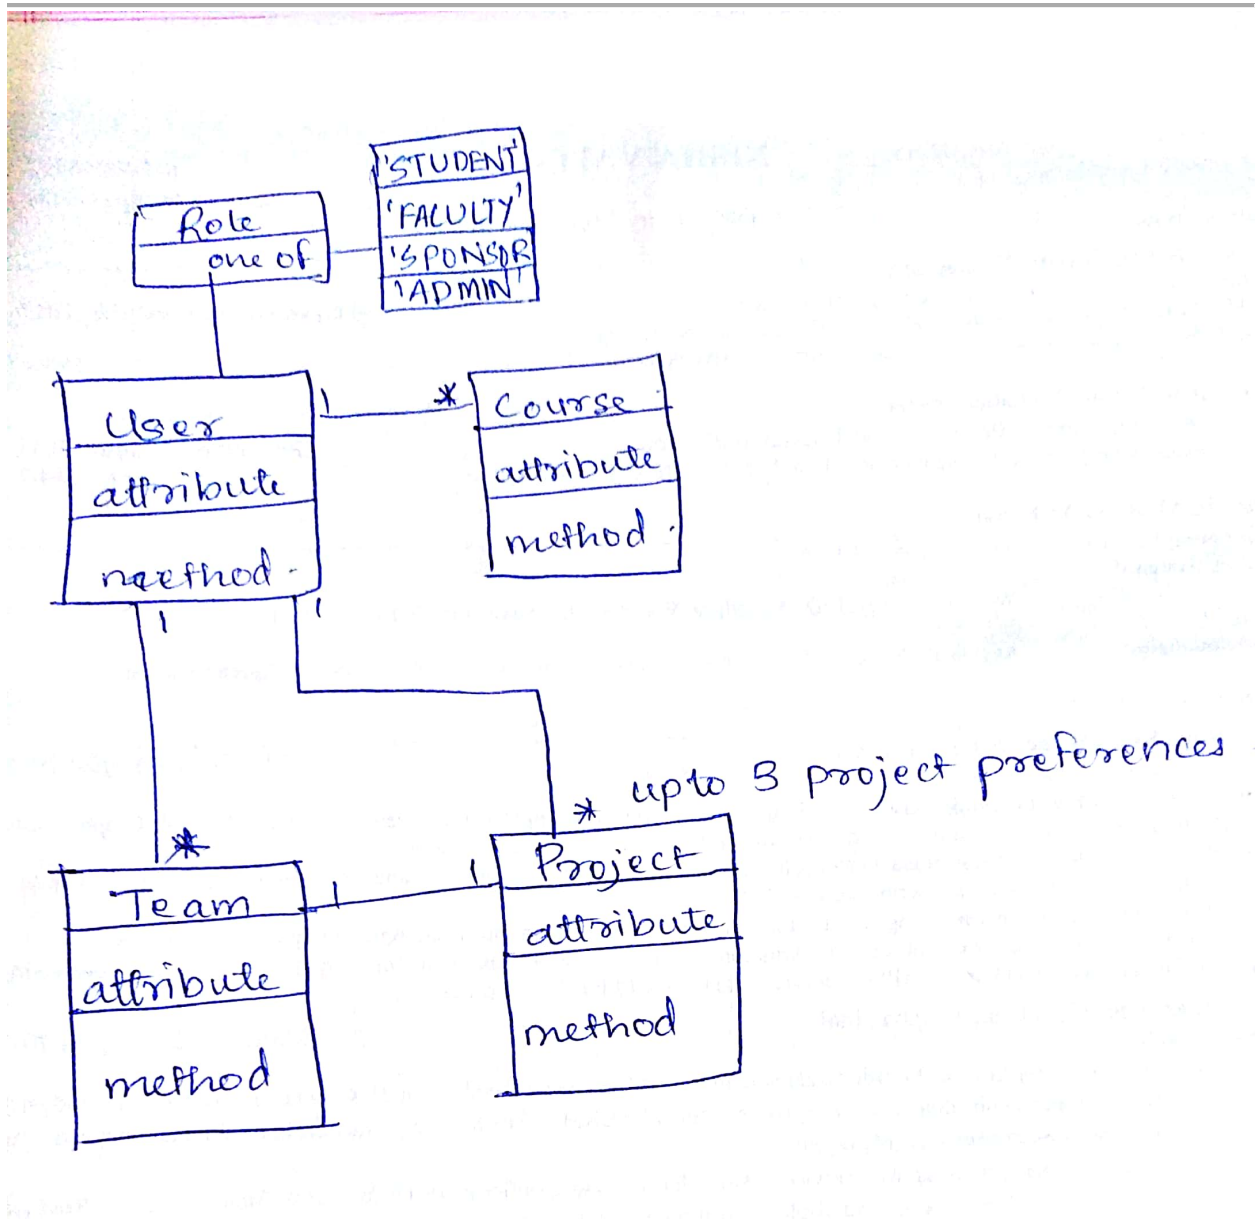 'STUDENT'
'FACULTY'
'SPONSOR
'ADMIN'
Role
one of
User
attribute
method
1
*
Course
attribute
method
1
1
upto 3 project preferences
*
*
Team
attribute
method
1
1
Project
attribute
method